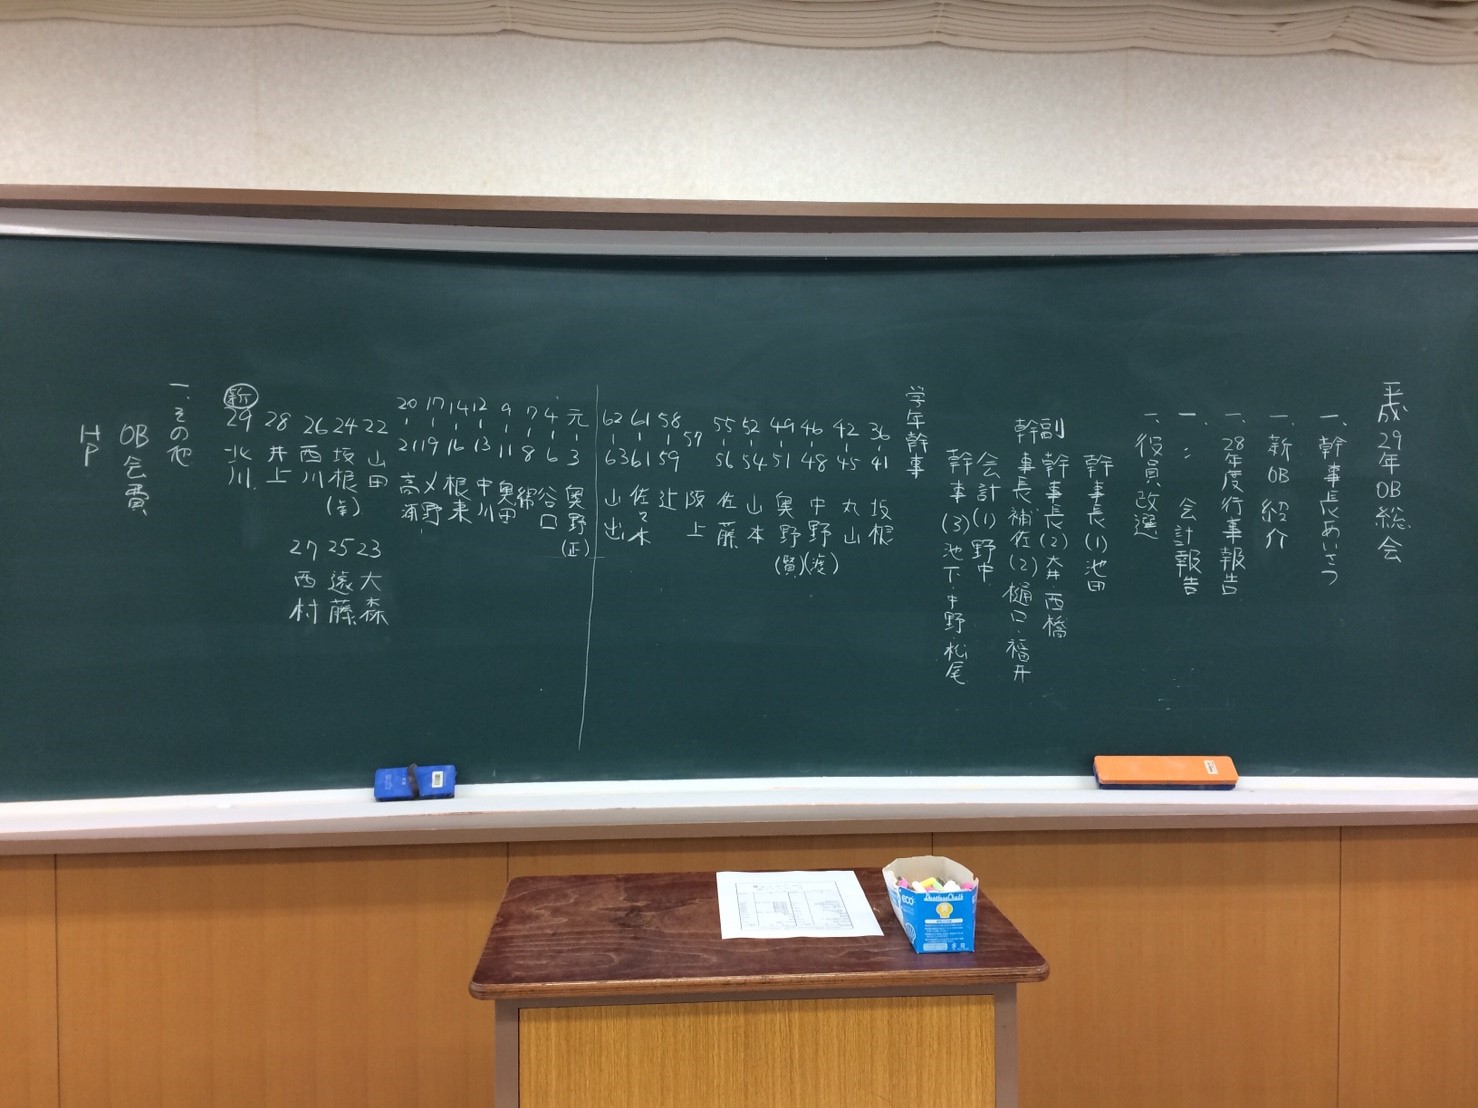 平成29年OB総会
一、幹事長あいさつ
一、新OB紹介
一、28年度行事報告
一、〃 会計報告
一、役員改選
幹事長(1)池田
副幹事長(2)大井・西橋
幹事長補佐(2)樋口・福井
会計(1)野中
幹事(3)池下・中野・松尾
学年幹事
36-41 坂根
42-45 丸山
46-48 中野(渡)
49-51 奥野(賢)
52-54 山本
55-56 佐藤
57 阪上
58-59 辻
61-61 佐々木
62-63 山出
元-3 奥野(正)
4-6 谷口
7-8 綿
9-11 奥田
12-13 中川
14-16 根来
17-19 乂野
20-21 高浦
22 山田
23 大森
24 坂根(幸)
25 遠藤
26 西川
27 西村
28 井上
新 29 北川
一、その他
OB会費
HP
eco
DustlessChalk